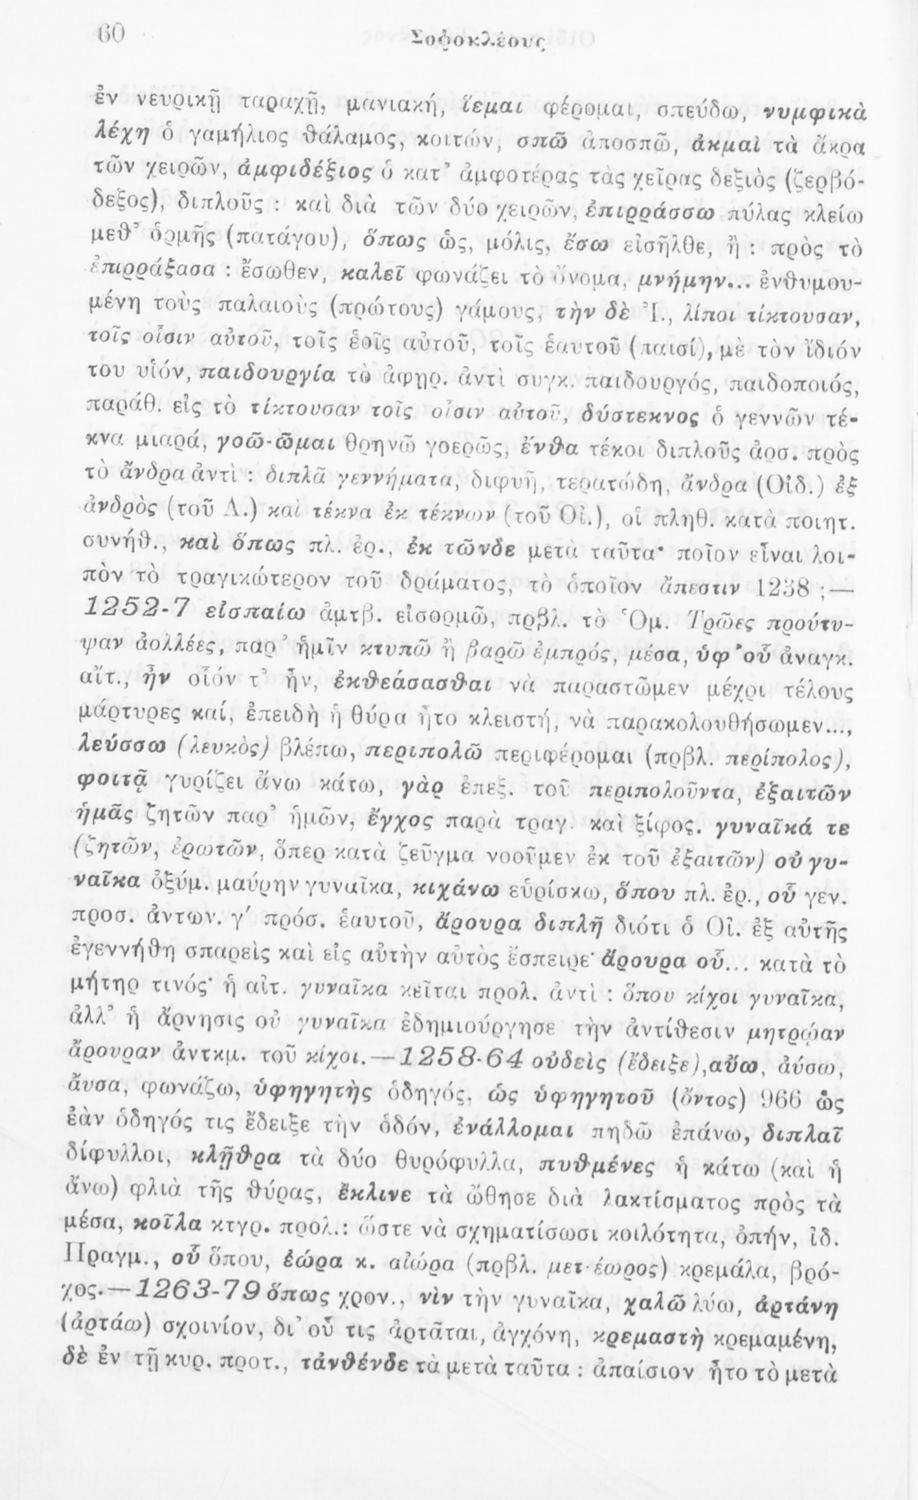 60
Σοφοκλέους
ἐν νευρικῇ ταραχῇ, μανιακή, ἵεμαι φέρομαι, σπεύδω, νυμφικὰ
λέχη ὁ γαμήλιος θάλαμος, κοιτών, σπῶ ἀποσπῶ, ἀκμαὶ τὰ ἄκρα
τῶν χειρῶν, ἀμφιδέξιος ὁ κατ' ἀμφοτέρας τὰς χεῖρας δεξιὸς (ζερβό-
δεξος), διπλοῦς : καὶ διὰ τῶν δύο χειρῶν, ἐπιρράσσω πύλας κλείω
μεθ' ὁρμῆς (πατάγου), ὅπως ὡς, μόλις, ἔσω εἰσῆλθε, ἢ : πρὸς τὸ
ἐπιρράξασα : ἔσωθεν, καλεῖ φωνάζει τὸ ὄνομα, μνήμην... ἐνθυμου-
μένη τοὺς παλαιοὺς (πρώτους) γάμους, τὴν δὲ Ἰ., λίποι τίκτουσαν,
τοῖς οἷσιν αὐτοῦ, τοῖς ἑοῖς αὐτοῦ, τοῖς ἑαυτοῦ (παισί), μὲ τὸν ἴδιόν
του υἱόν, παιδουργία τὸ ἀφῃρ. ἀντὶ συγκ. παιδουργός, παιδοποιός,
παράθ. εἰς τὸ τίκτουσαν τοῖς οἷσιν αὐτοῦ, δύστεκνος ὁ γεννῶν τέ-
κνα μιαρά, γοῶ-ῶμαι θρηνῶ γοερῶς, ἔνθα τέκοι διπλοῦς ἀρσ. πρὸς
τὸ ἄνδρα ἀντὶ : διπλᾶ γεννήματα, διφυῆ, τερατώδη, ἄνδρα (Οἰδ.) ἐξ
ἀνδρὸς (τοῦ Λ.) καὶ τέκνα ἐκ τέκνων (τοῦ Οἰ.), οἱ πληθ. κατὰ ποιητ.
συνήθ., καὶ ὅπως πλ. ἐρ., ἐκ τῶνδε μετὰ ταῦτα· ποῖον εἶναι λοι-
πὸν τὸ τραγικώτερον τοῦ δράματος, τὸ ὁποῖον ἄπεστιν 1238 ;—
1252-7 εἰσπαίω ἀμτβ. εἰσορμῶ, πρβλ. τὸ Ὁμ. Τρῶες προύτυ-
ψαν ἀολλέες, παρ' ἡμῖν κτυπῶ ἢ βαρῶ ἐμπρός, μέσα, ὑφ' οὗ ἀναγκ.
αἴτ., ἦν οἷόν τ' ἦν, ἐκθεάσασθαι νὰ παραστῶμεν μέχρι τέλους
μάρτυρες καί, ἐπειδὴ ἡ θύρα ἦτο κλειστή, νὰ παρακολουθήσωμεν...,
λεύσσω (λευκὸς) βλέπω, περιπολῶ περιφέρομαι (πρβλ. περίπολος),
φοιτᾷ γυρίζει ἄνω κάτω, γὰρ ἐπεξ. τοῦ περιπολοῦντα, ἐξαιτῶν
ἡμᾶς ζητῶν παρ' ἡμῶν, ἔγχος παρὰ τραγ. καὶ ξίφος. γυναῖκά τε
(ζητῶν, ἐρωτῶν, ὅπερ κατὰ ζεῦγμα νοοῦμεν ἐκ τοῦ ἐξαιτῶν) οὐ γυ-
ναῖκα ὀξύμ. μαύρην γυναῖκα, κιχάνω εὑρίσκω, ὅπου πλ. ἐρ., οὗ γεν.
προσ. ἀντων. γ' πρόσ. ἑαυτοῦ, ἄρουρα διπλῆ διότι ὁ Οἰ. ἐξ αὐτῆς
ἐγεννήθη σπαρεὶς καὶ εἰς αὐτὴν αὐτὸς ἔσπειρε· ἄρουρα οὗ... κατὰ τὸ
μήτηρ τινός· ἡ αἰτ. γυναῖκα κεῖται προλ. ἀντὶ : ὅπου κίχοι γυναῖκα,
ἀλλ' ἡ ἄρνησις οὐ γυναῖκα ἐδημιούργησε τὴν ἀντίθεσιν μητρῴαν
ἄρουραν ἀντκμ. τοῦ κίχοι.—1258-64 οὐδεὶς (ἔδειξε), αὔω, ἀύσω,
ἄυσα, φωνάζω, ὑφηγητὴς ὁδηγός, ὡς ὑφηγητοῦ (ὄντος) 966 ὡς
ἐὰν ὁδηγός τις ἔδειξε τὴν ὁδόν, ἐνάλλομαι πηδῶ ἐπάνω, διπλαῖ
δίφυλλοι, κλῇθρα τὰ δύο θυρόφυλλα, πυθμένες ἡ κάτω (καὶ ἡ
ἄνω) φλιὰ τῆς θύρας, ἔκλινε τὰ ὤθησε διὰ λακτίσματος πρὸς τὰ
μέσα, κοῖλα κτγρ. προλ.: ὥστε νὰ σχηματίσωσι κοιλότητα, ὀπήν, ἰδ.
Πραγμ., οὗ ὅπου, ἐώρα κ. αἰώρα (πρβλ. μετ-έωρος) κρεμάλα, βρό-
χος.—1263-79 ὅπως χρον., νὶν τὴν γυναῖκα, χαλῶ λύω, ἀρτάνη
(ἀρτάω) σχοινίον, δι' οὗ τις ἀρτᾶται, ἀγχόνη, κρεμαστὴ κρεμαμένη,
δὲ ἐν τῇ κυρ. προτ., τἀνθένδε τὰ μετὰ ταῦτα : ἀπαίσιον ἦτο τὸ μετὰ